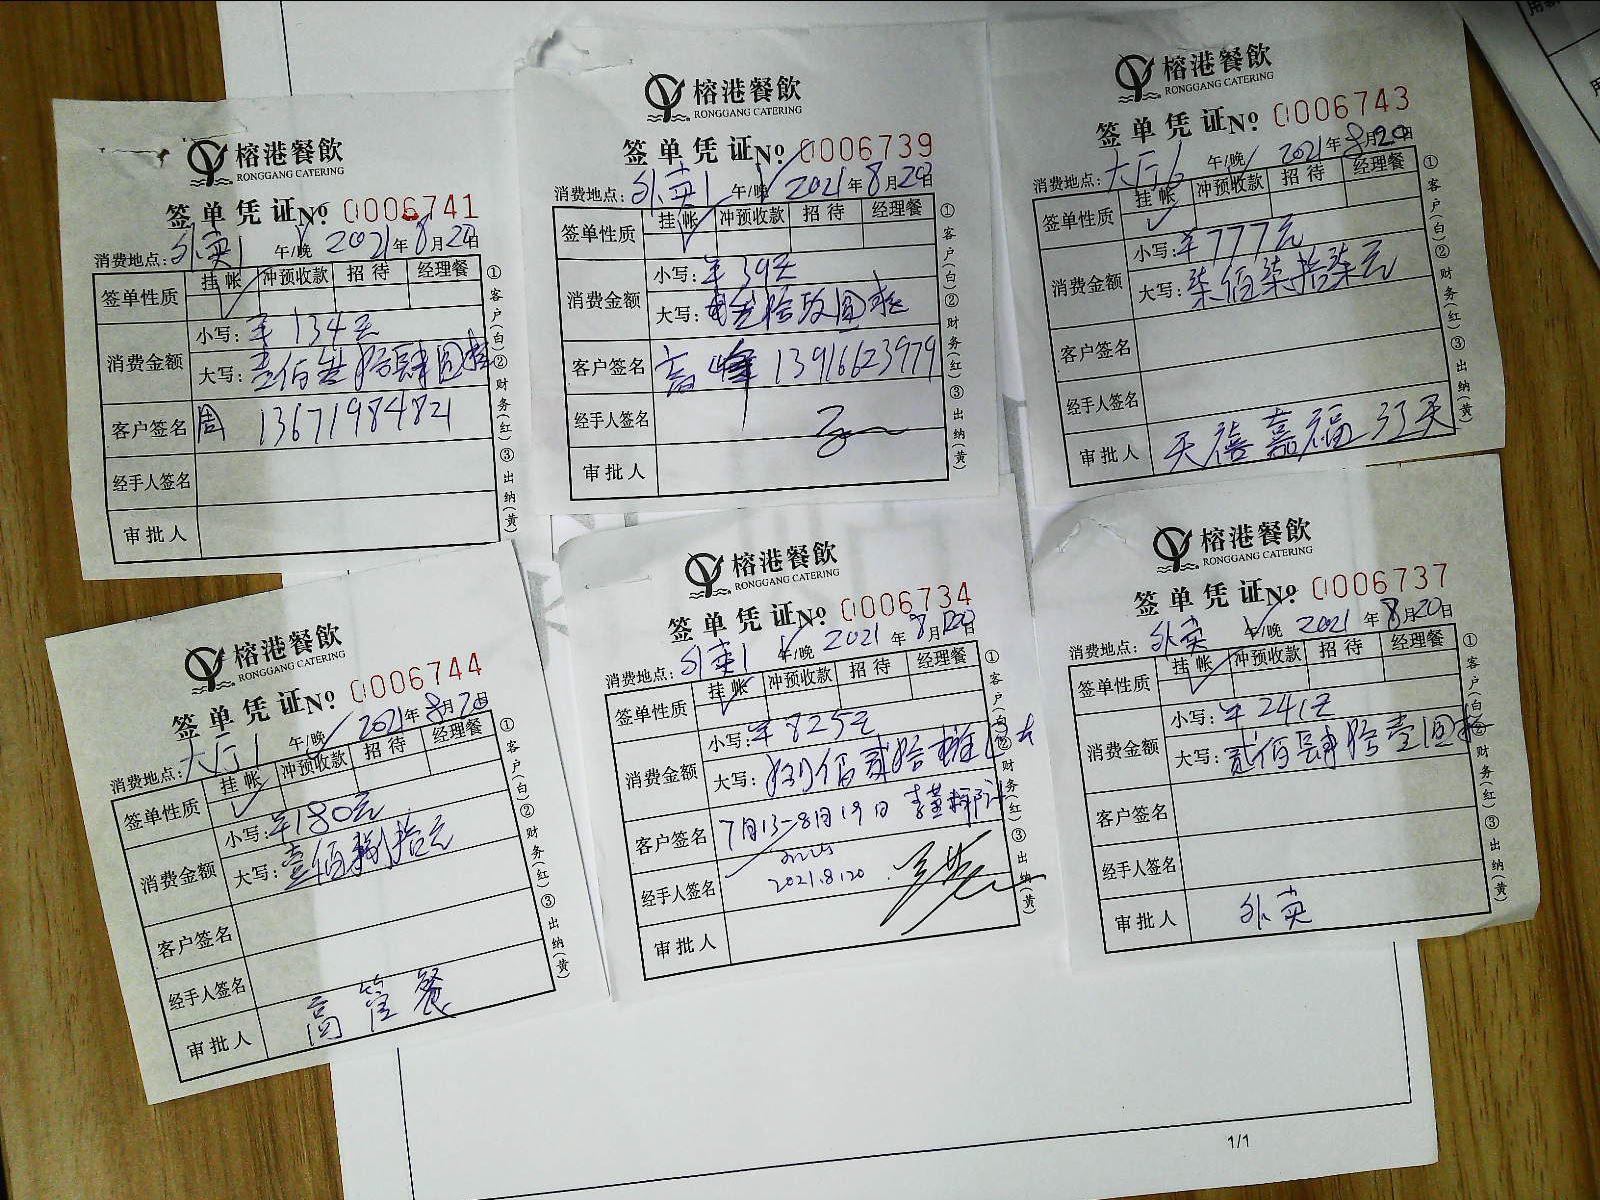 榕港餐飲
RONGGANG CATERING
签单凭证 No 0006741
消费地点：外卖1 午/晚 2021年8月20日
签单性质 挂帐 冲预收款 招待 经理餐
消费金额 小写：¥134元
大写：壹佰叁拾肆圆整
客户签名 周 13671984821
经手人签名
审批人
①客户(白)②财务(红)③出纳(黄)
榕港餐飲
RONGGANG CATERING
签单凭证 No 0006739
消费地点：外卖1 午/晚 2021年8月20日
签单性质 挂帐 冲预收款 招待 经理餐
消费金额 小写：¥39元
大写：叁拾玖圆整
客户签名 高峰 13916623979
经手人签名
审批人
①客户(白)②财务(红)③出纳(黄)
榕港餐飲
RONGGANG CATERING
签单凭证 No 0006743
消费地点：大厅6 午/晚 2021年8月20日
签单性质 挂帐 冲预收款 招待 经理餐
消费金额 小写：¥777元
大写：柒佰柒拾柒元
客户签名
经手人签名
审批人 天禧嘉福
①客户(白)②财务(红)③出纳(黄)
榕港餐飲
RONGGANG CATERING
签单凭证 No 0006744
消费地点：大厅1 午/晚 2021年8月20日
签单性质 挂帐 冲预收款 招待 经理餐
消费金额 小写：¥180元
大写：壹佰捌拾元
客户签名
经手人签名
审批人 高管餐
①客户(白)②财务(红)③出纳(黄)
榕港餐飲
RONGGANG CATERING
签单凭证 No 0006734
消费地点：外卖1 午/晚 2021年8月20日
签单性质 挂帐 冲预收款 招待 经理餐
消费金额 小写：¥825元
大写：捌佰贰拾
客户签名 7月13-8月19日
经手人签名 2021.8.20
审批人
①客户(白)②财务(红)③出纳(黄)
榕港餐飲
RONGGANG CATERING
签单凭证 No 0006737
消费地点：外卖 午/晚 2021年8月20日
签单性质 挂帐 冲预收款 招待 经理餐
消费金额 小写：¥241元
大写：贰佰肆拾壹圆整
客户签名
经手人签名
审批人 外卖
①客户(白)②财务(红)③出纳(黄)
1/1